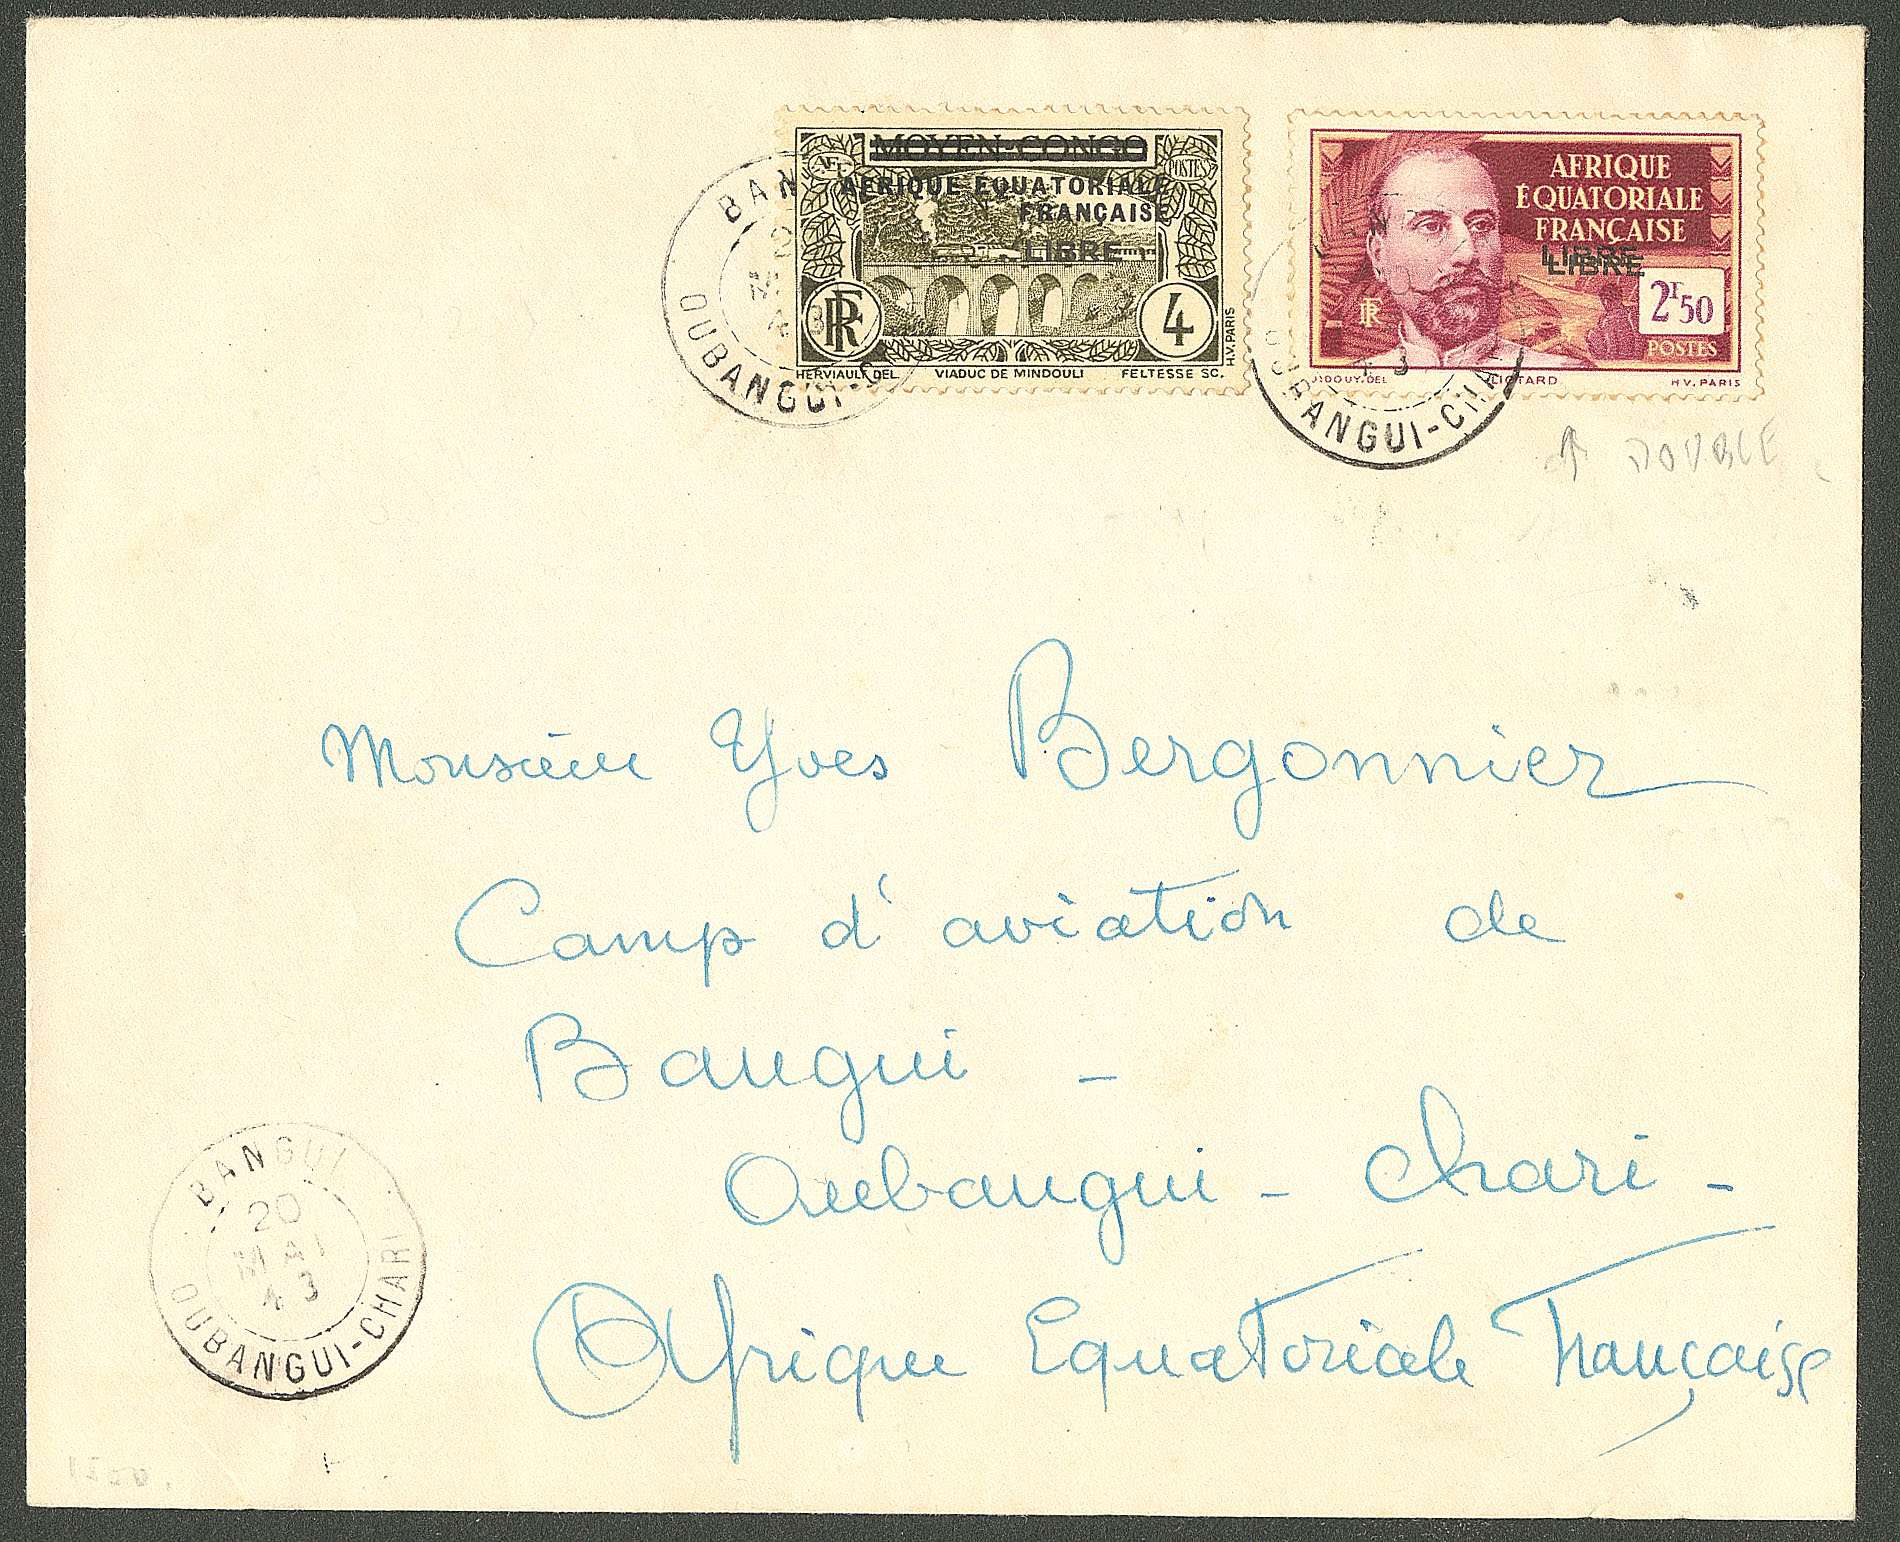 MOYEN-CONGO
AEF
POSTES
AFRIQUE ÉQUATORIALE
FRANÇAISE
LIBRE
RF
4
HERVIAULT DEL.
VIADUC DE MINDOULI
FELTESSE SC.
H.V. PARIS
AFRIQUE
ÉQUATORIALE
FRANÇAISE
LIBRE
LIBRE
RF
2F50
POSTES
J.DOUY.DEL
LIOTARD
H.V. PARIS
BAN
OUBANGUI-
43
OUBANGUI-CHA
DOUBLE
Monsieur Yves Bergonnier
Camp d'aviation de
Bangui -
Oubangui - Chari -
Afrique Equatoriale Française
BANGUI
20
MAI
43
OUBANGUI-CHARI